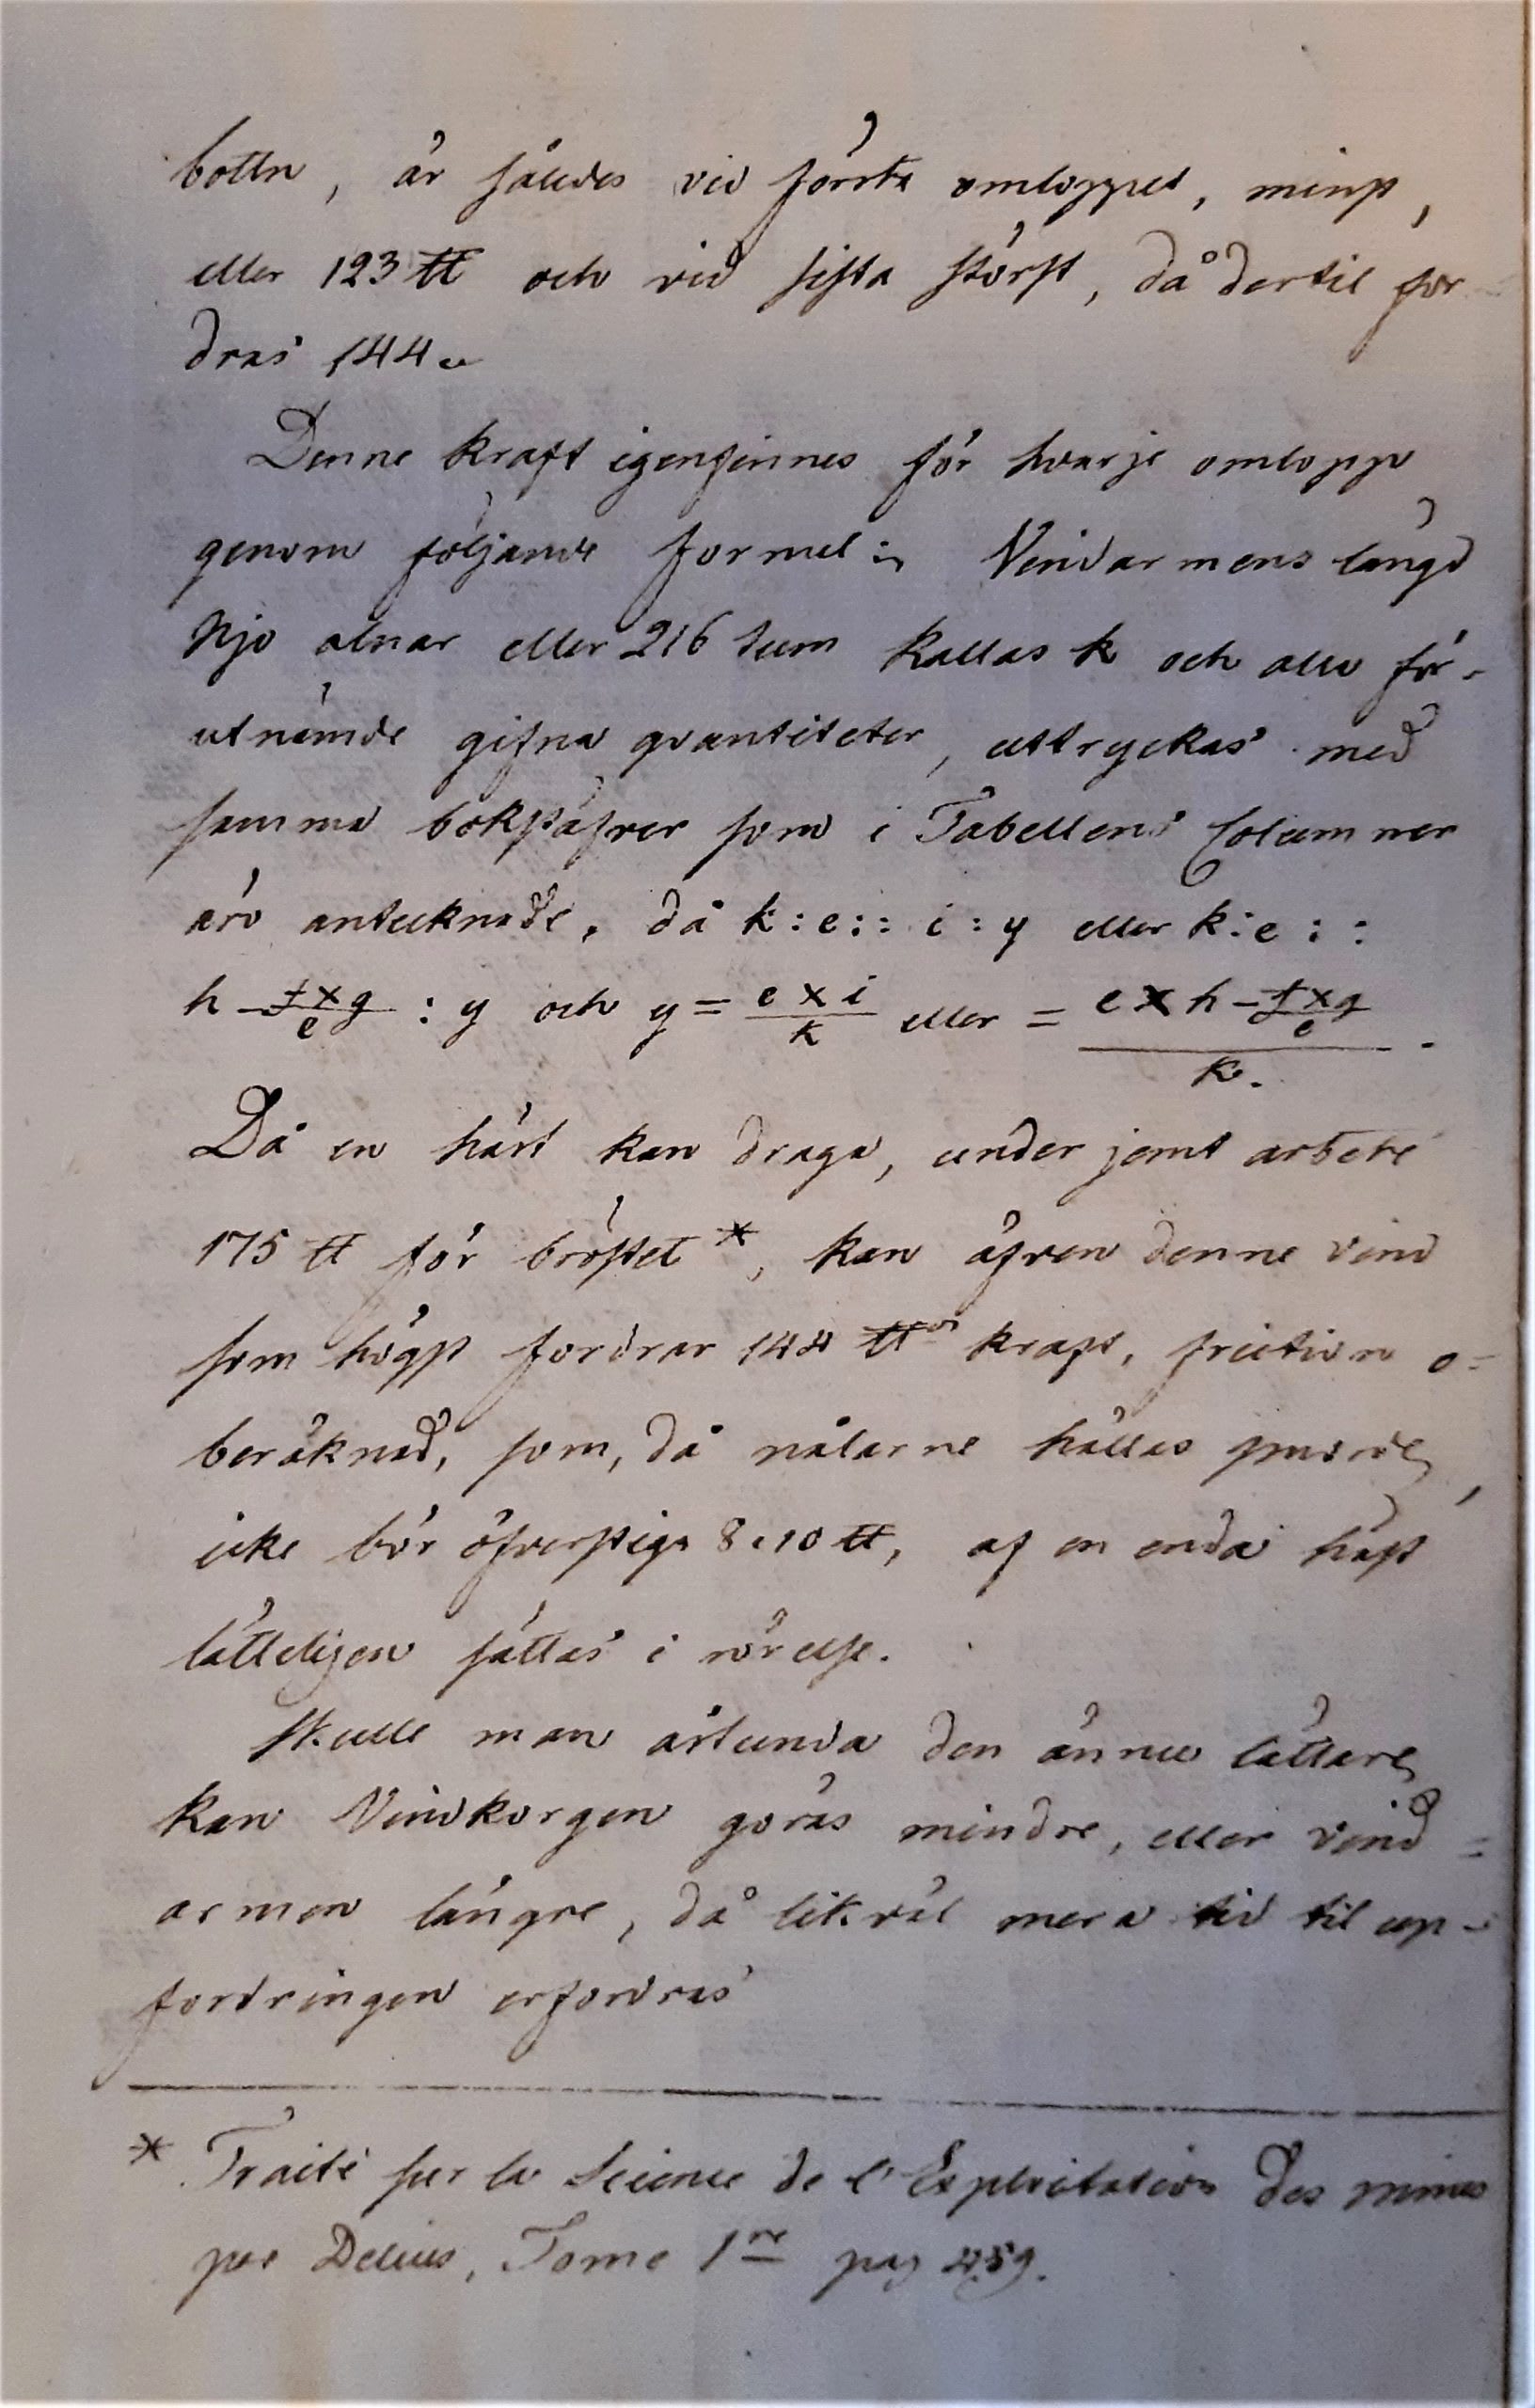 bottn, är således vid första omloppet, minst,
eller 123 ℔ och vid sista störst, då dertil for
dras 144 „
Denne kraft igenfinnes för hvarje omlopp
genom följande formel: Vindarmens längd
Njo alnar eller 216 tum kallas k och alla för-
utnämde gifna qvantiteter, uttryckas med
samma bokstäfver som i Tabellens Columner
äro antecknade, då k : e :: i : y eller k : e : :
h - f×g/e : y och y = e × i/k eller = e × h - f×g/e / k.
Då en häst kan draga, under jemt arbete
175 ℔ för bröstet *, kan äfven denne vind
som högst fordrar 144 ℔s kraft, friction o=
beräknad, som, då nålarne hållas smorde,
icke bör öfverstiga 8 à 10 ℔, af en enda häst
lätteligen sättas i rörelse.
Skulle man åstunda den ännu lättare,
kan Vindkorgen göras mindre, eller vind=
armen längre, då likväl mera tid til up-
fordringen erfordras
* Traité sur la Science de l'Exploitation des mines
par Delius, Tome 1re pag 459.